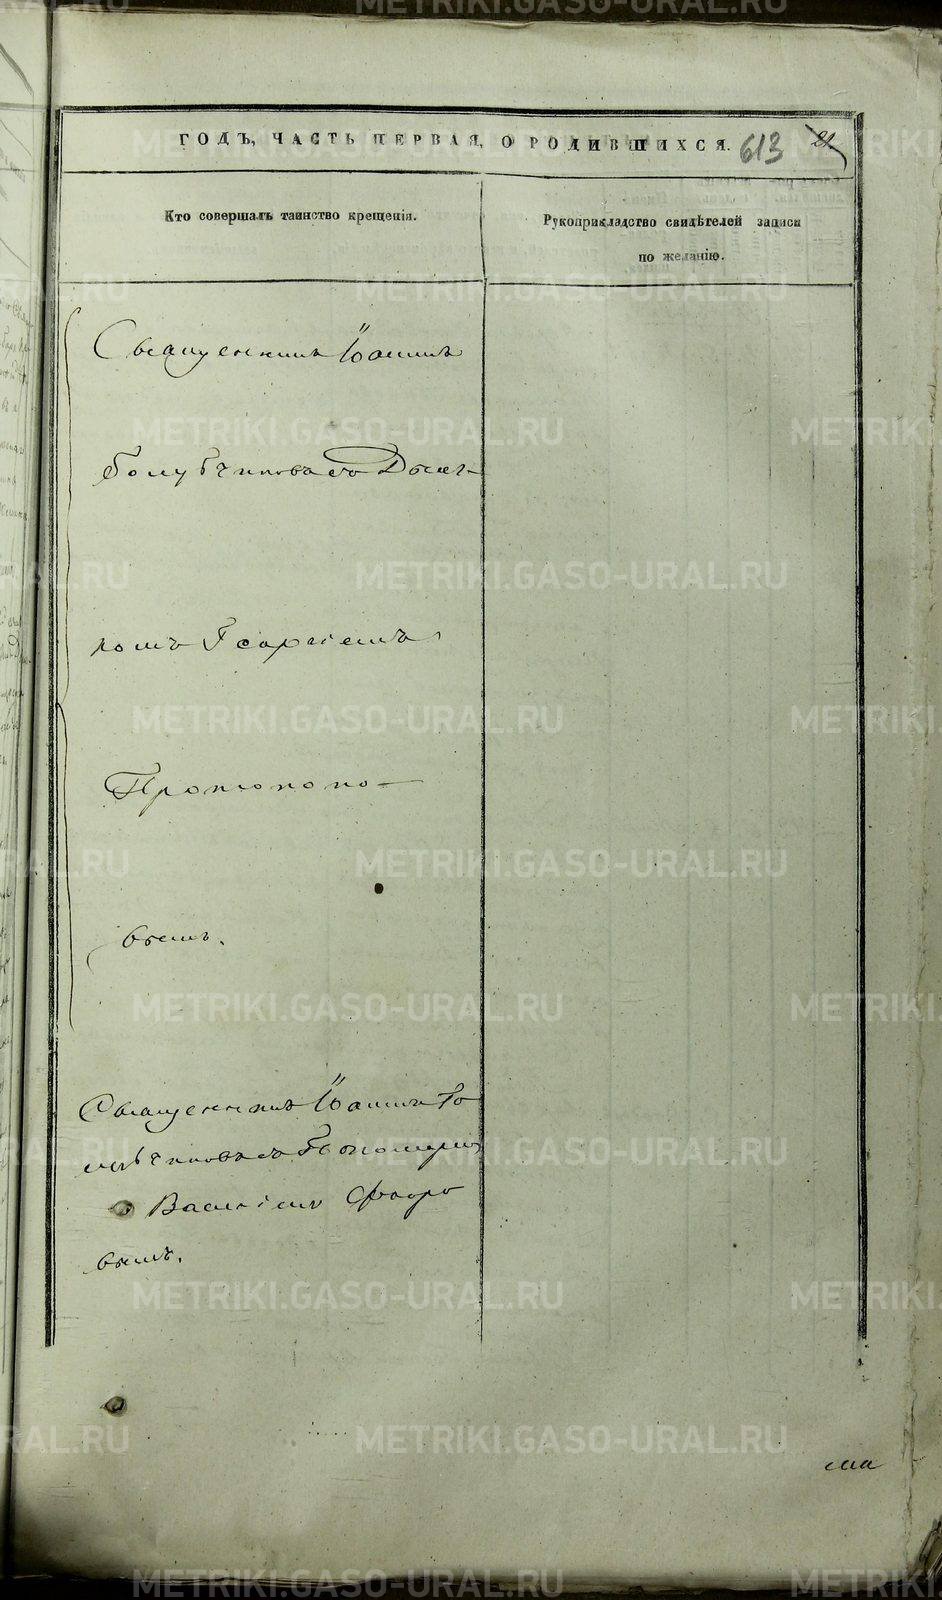 ГОДЪ, ЧАСТЬ ПЕРВАЯ, О РОДИВШИХСЯ. 613 21.
Кто совершалъ таинство крещенія.
Рукоприкладство свидѣтелей записи
по желанію.
Священникъ Іоаннъ
Голубчиковъ съ Дьяч-
комъ Георгіемъ
Протопопо-
вымъ.
Священникъ Іоаннъ Го
съ Пономаремъ
Василіемъ Флоро
вымъ.
METRIKI.GASO-URAL.RU